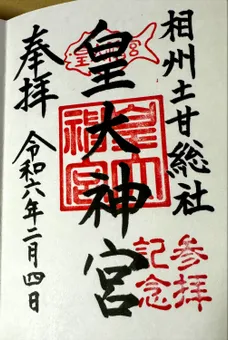 相州土甘総社
皇大神宮
皇大神宮
参拝
記念
奉拝
令和六年二月四日